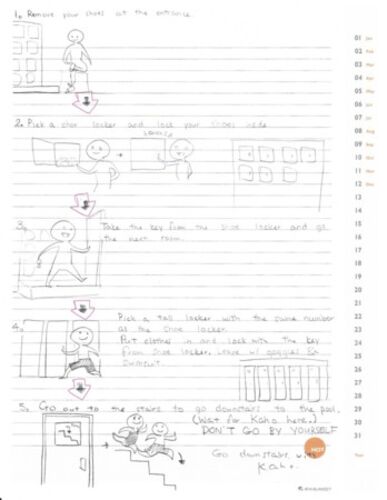 1. Remove your shoes at the entrance.
2. Pick a shoe locker and lock your shoes inside
3. Take the key from the shoe locker and go
the next room.
4. Pick a tall locker with the same number
as the shoe locker.
Put clothes in and lock with the key
from shoe locker. Leave w/ goggles &
swimsuit.
5. Go out to the stairs to go downstairs to the pool.
(Wait for Kaho here.)
DON'T GO BY YOURSELF
Go downstairs with
Kaho.
01 Jan
02 Feb
03 Mar
04 Apr
05 May
06 Jun
07 Jul
08 Aug
09 Sep
10 Oct
11 Nov
12 Dec
13
14
15
16
17
18
19
20
21
22
23
24
25
26
27
28
29
30
31